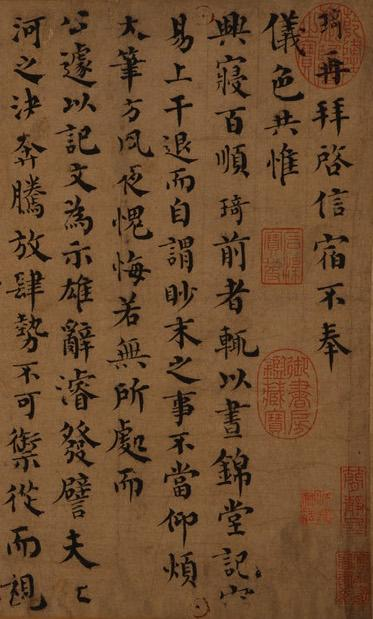 琦再拜啓信宿不奉
儀色共惟
興寢百順琦前者輒以晝錦堂記容
易上干退而自謂眇末之事不當仰煩
大筆方夙夜愧悔若無所處而
公遽以記文為示雄辭濬發譬夫江
河之決奔騰放肆勢不可禦從而視
石渠寶笈
御書房鑑藏寶